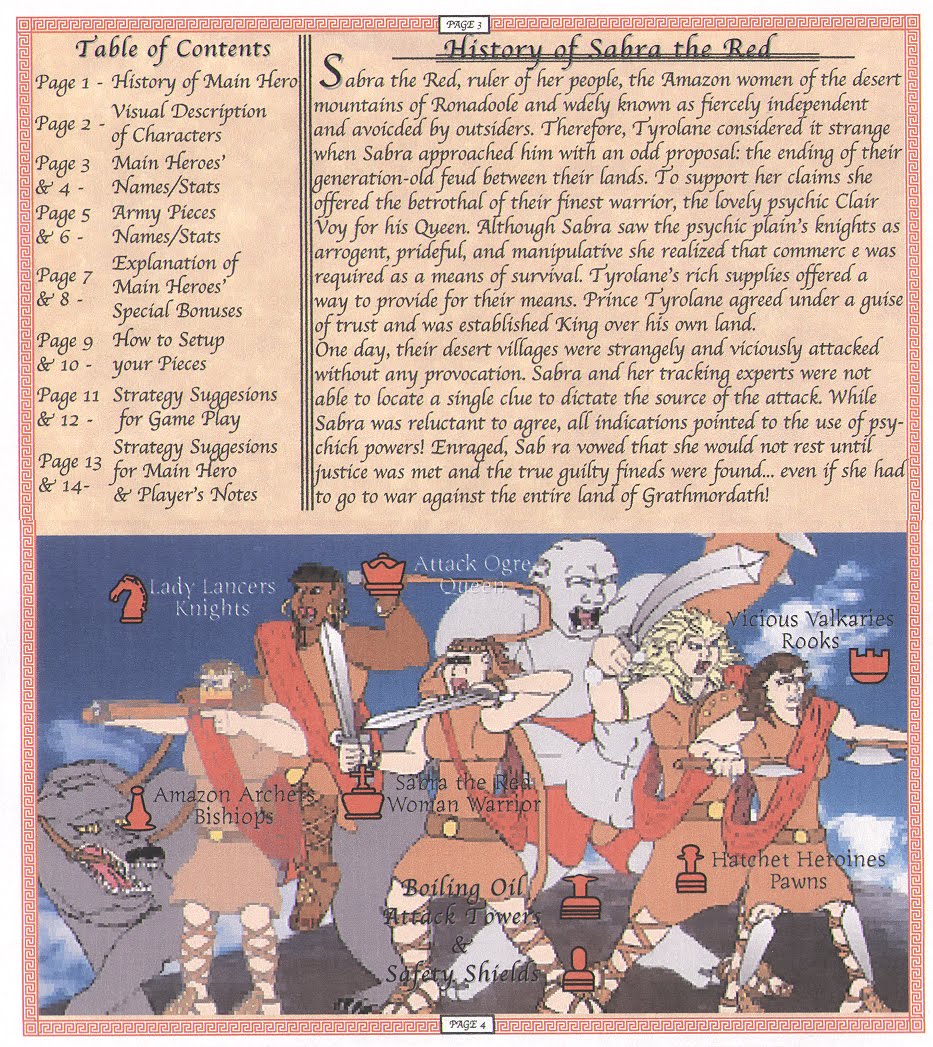 PAGE 3
Table of Contents
Page 1 - History of Main Hero
Page 2 - Visual Description
of Characters
Page 3 Main Heroes'
& 4 - Names/Stats
Page 5 Army Pieces
& 6 - Names/Stats
Page 7 Explanation of
& 8 - Main Heroes'
Special Bonuses
Page 9 How to Setup
& 10 - your Pieces
Page 11 Strategy Suggesions
& 12 - for Game Play
Page 13 Strategy Suggesions
& 14- for Main Hero
& Player's Notes
History of Sabra the Red
Sabra the Red, ruler of her people, the Amazon women of the desert
mountains of Ronadoole and wdely known as fiercely independent
and avoicded by outsiders. Therefore, Tyrolane considered it strange
when Sabra approached him with an odd proposal: the ending of their
generation-old feud between their lands. To support her claims she
offered the betrothal of their finest warrior, the lovely psychic Clair
Voy for his Queen. Although Sabra saw the psychic plain's knights as
arrogent, prideful, and manipulative she realized that commerc e was
required as a means of survival. Tyrolane's rich supplies offered a
way to provide for their means. Prince Tyrolane agreed under a guise
of trust and was established King over his own land.
One day, their desert villages were strangely and viciously attacked
without any provocation. Sabra and her tracking experts were not
able to locate a single clue to dictate the source of the attack. While
Sabra was reluctant to agree, all indications pointed to the use of psy-
chich powers! Enraged, Sab ra vowed that she would not rest until
justice was met and the true guilty fineds were found... even if she had
to go to war against the entire land of Grathmordath!
Lady Lancers
Knights
Attack Ogre
Queen
Vicious Valkaries
Rooks
Amazon Archers
Bishiops
Sabra the Red
Woman Warrior
Hatchet Heroines
Pawns
Boiling Oil
Attack Towers
&
Safety Shields
PAGE 4